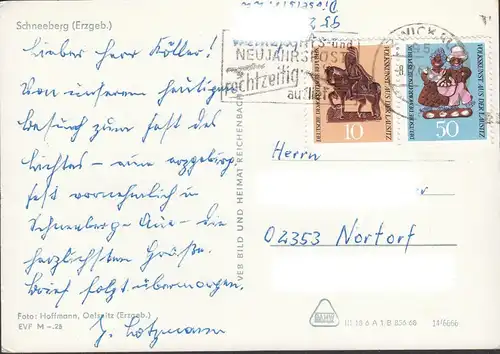 Schneeberg (Erzgeb.)
Lieber Herr Köller!
Von unserem heutigen
Besuch zum Fest des
Lichtes – ein erzgebirg.
Fest vornehmlich in
Schneeberg-Aue – die
herzlichsten Grüße.
Brief folgt übermorgen.
Foto: Hoffmann, Oelsnitz (Erzgeb.)
EVP M –.25
VEB BILD UND HEIMAT REICHENBACH
und
NEUJAHRSPOST
rechtzeitig
DEUTSCHE DEMOKRATISCHE REPUBLIK
10
VOLKSKUNST AUS DER LAUSITZ
DEUTSCHE DEMOKRATISCHE REPUBLIK
50
VOLKSKUNST AUS DER LAUSITZ
Herrn
02353 Nortorf
III 18 6 A 1 B 856 68 14/6666